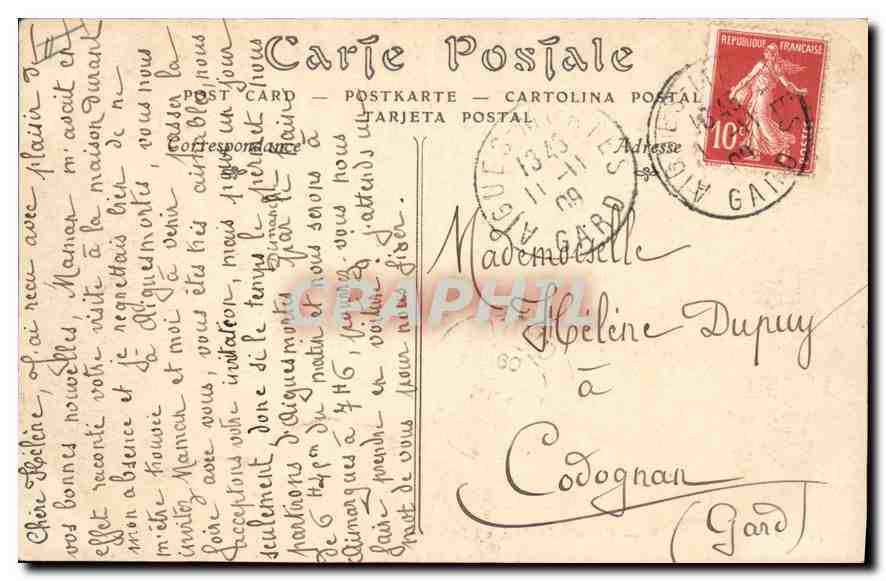 Carte Postale
POST CARD — POSTKARTE — CARTOLINA POSTAL
TARJETA POSTAL
Correspondance
Adresse
REPUBLIQUE FRANÇAISE
10c
POSTES
AIGUES-MORTES
13 45
11 -11
09
GARD
AIGUES
GARD
Mademoiselle
Hélène Dupuy
à
Codognan
(Gard)
Chère Hélène, J'ai reçu avec plaisir
vos bonnes nouvelles, Maman m'avait en
effet raconté votre visite à la maison durant
mon absence et je regrettais bien de ne
m'être trouvée là - Aiguesmortes, vous nous
invitez Maman et moi à venir passer la
foire avec vous, vous êtes très aimables, nous
acceptons votre invitation, mais pour un jour
seulement donc si le temps le permet nous
Dimanche
partirons d'Aiguesmortes par le train
de 6 du matin et nous serons à
Aimargues à 7 H 6, vous nous
faire prendre en voiture. J'attends un
mot de vous pour nous fixer.
CPAPHIL